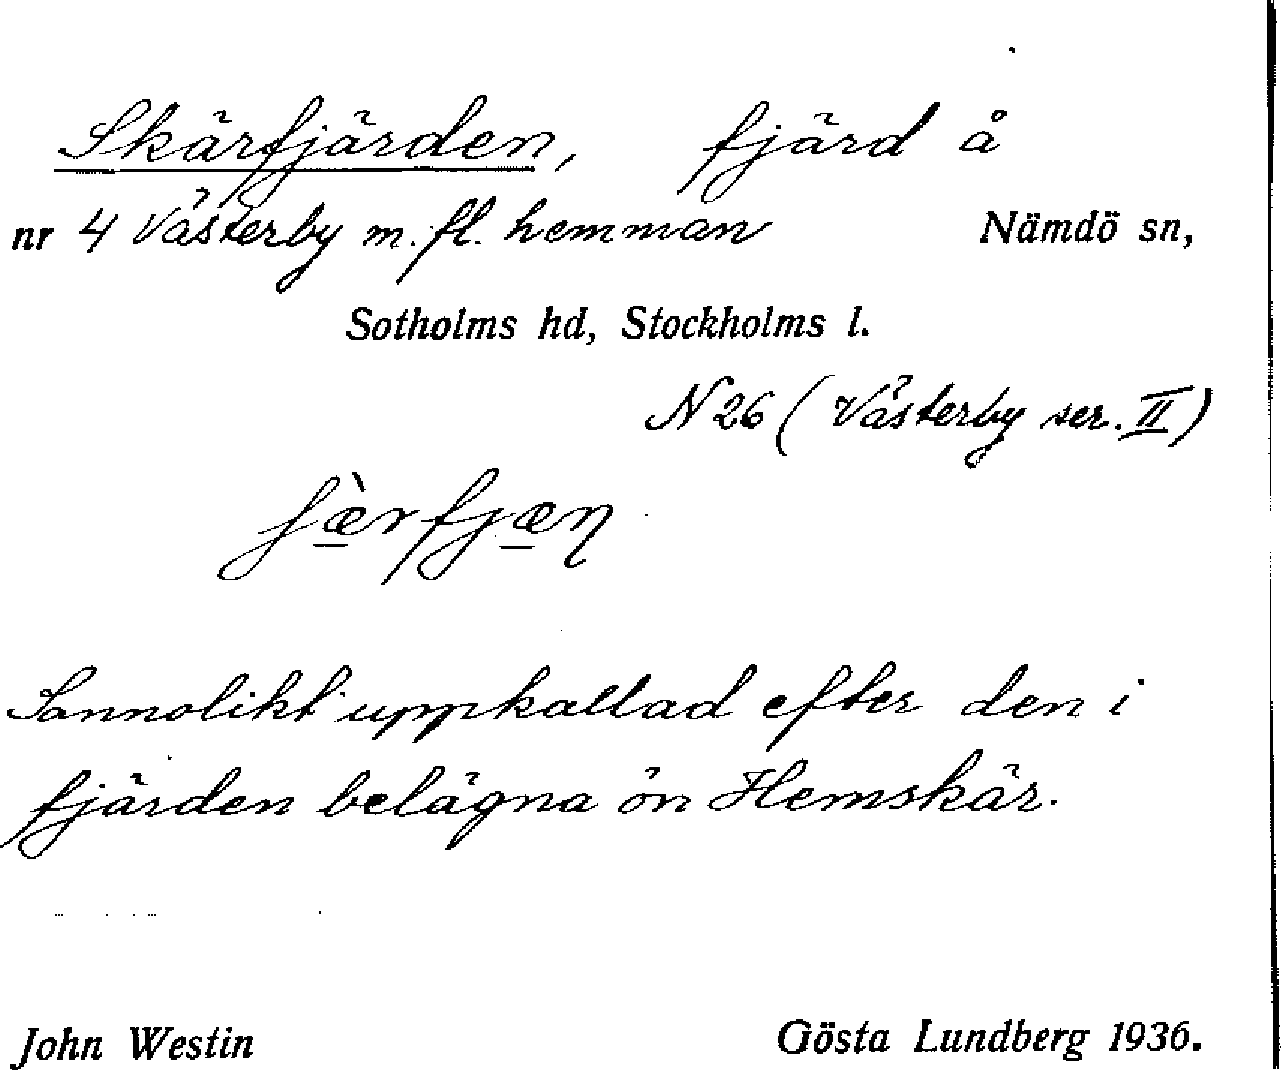 Skärfjärden, fjärd å
nr 4 Västerby m. fl. hemman Nämdö sn,
Sotholms hd, Stockholms l.
N 26 (Västerby ser. II)
ʃæ̀rfjæɳ
Sannolikt uppkallad efter den i
fjärden belägna ön Hemskär.
John Westin Gösta Lundberg 1936.